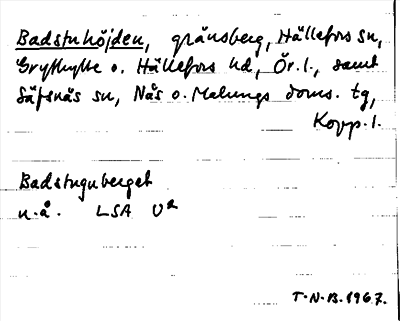 Badstuhöjden, gränsberg, Hällefors sn,
Grythytte o. Hällefors hd, Ör. l., samt
Säfsnäs sn, Nås o. Malungs doms. tg,
Kopp. l.
Badstuguberget
u.å. LSA U2
T.N.B. 1967.